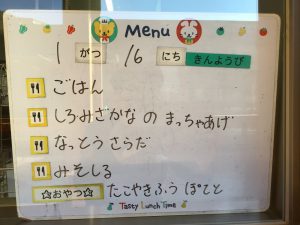 Menu
1 がつ 16 にち きんようび
ごはん
しろみざかな の まっちゃあげ
なっとう さらだ
みそしる
☆おやつ☆ たこやきふう ぽてと
Tasty Lunch Time